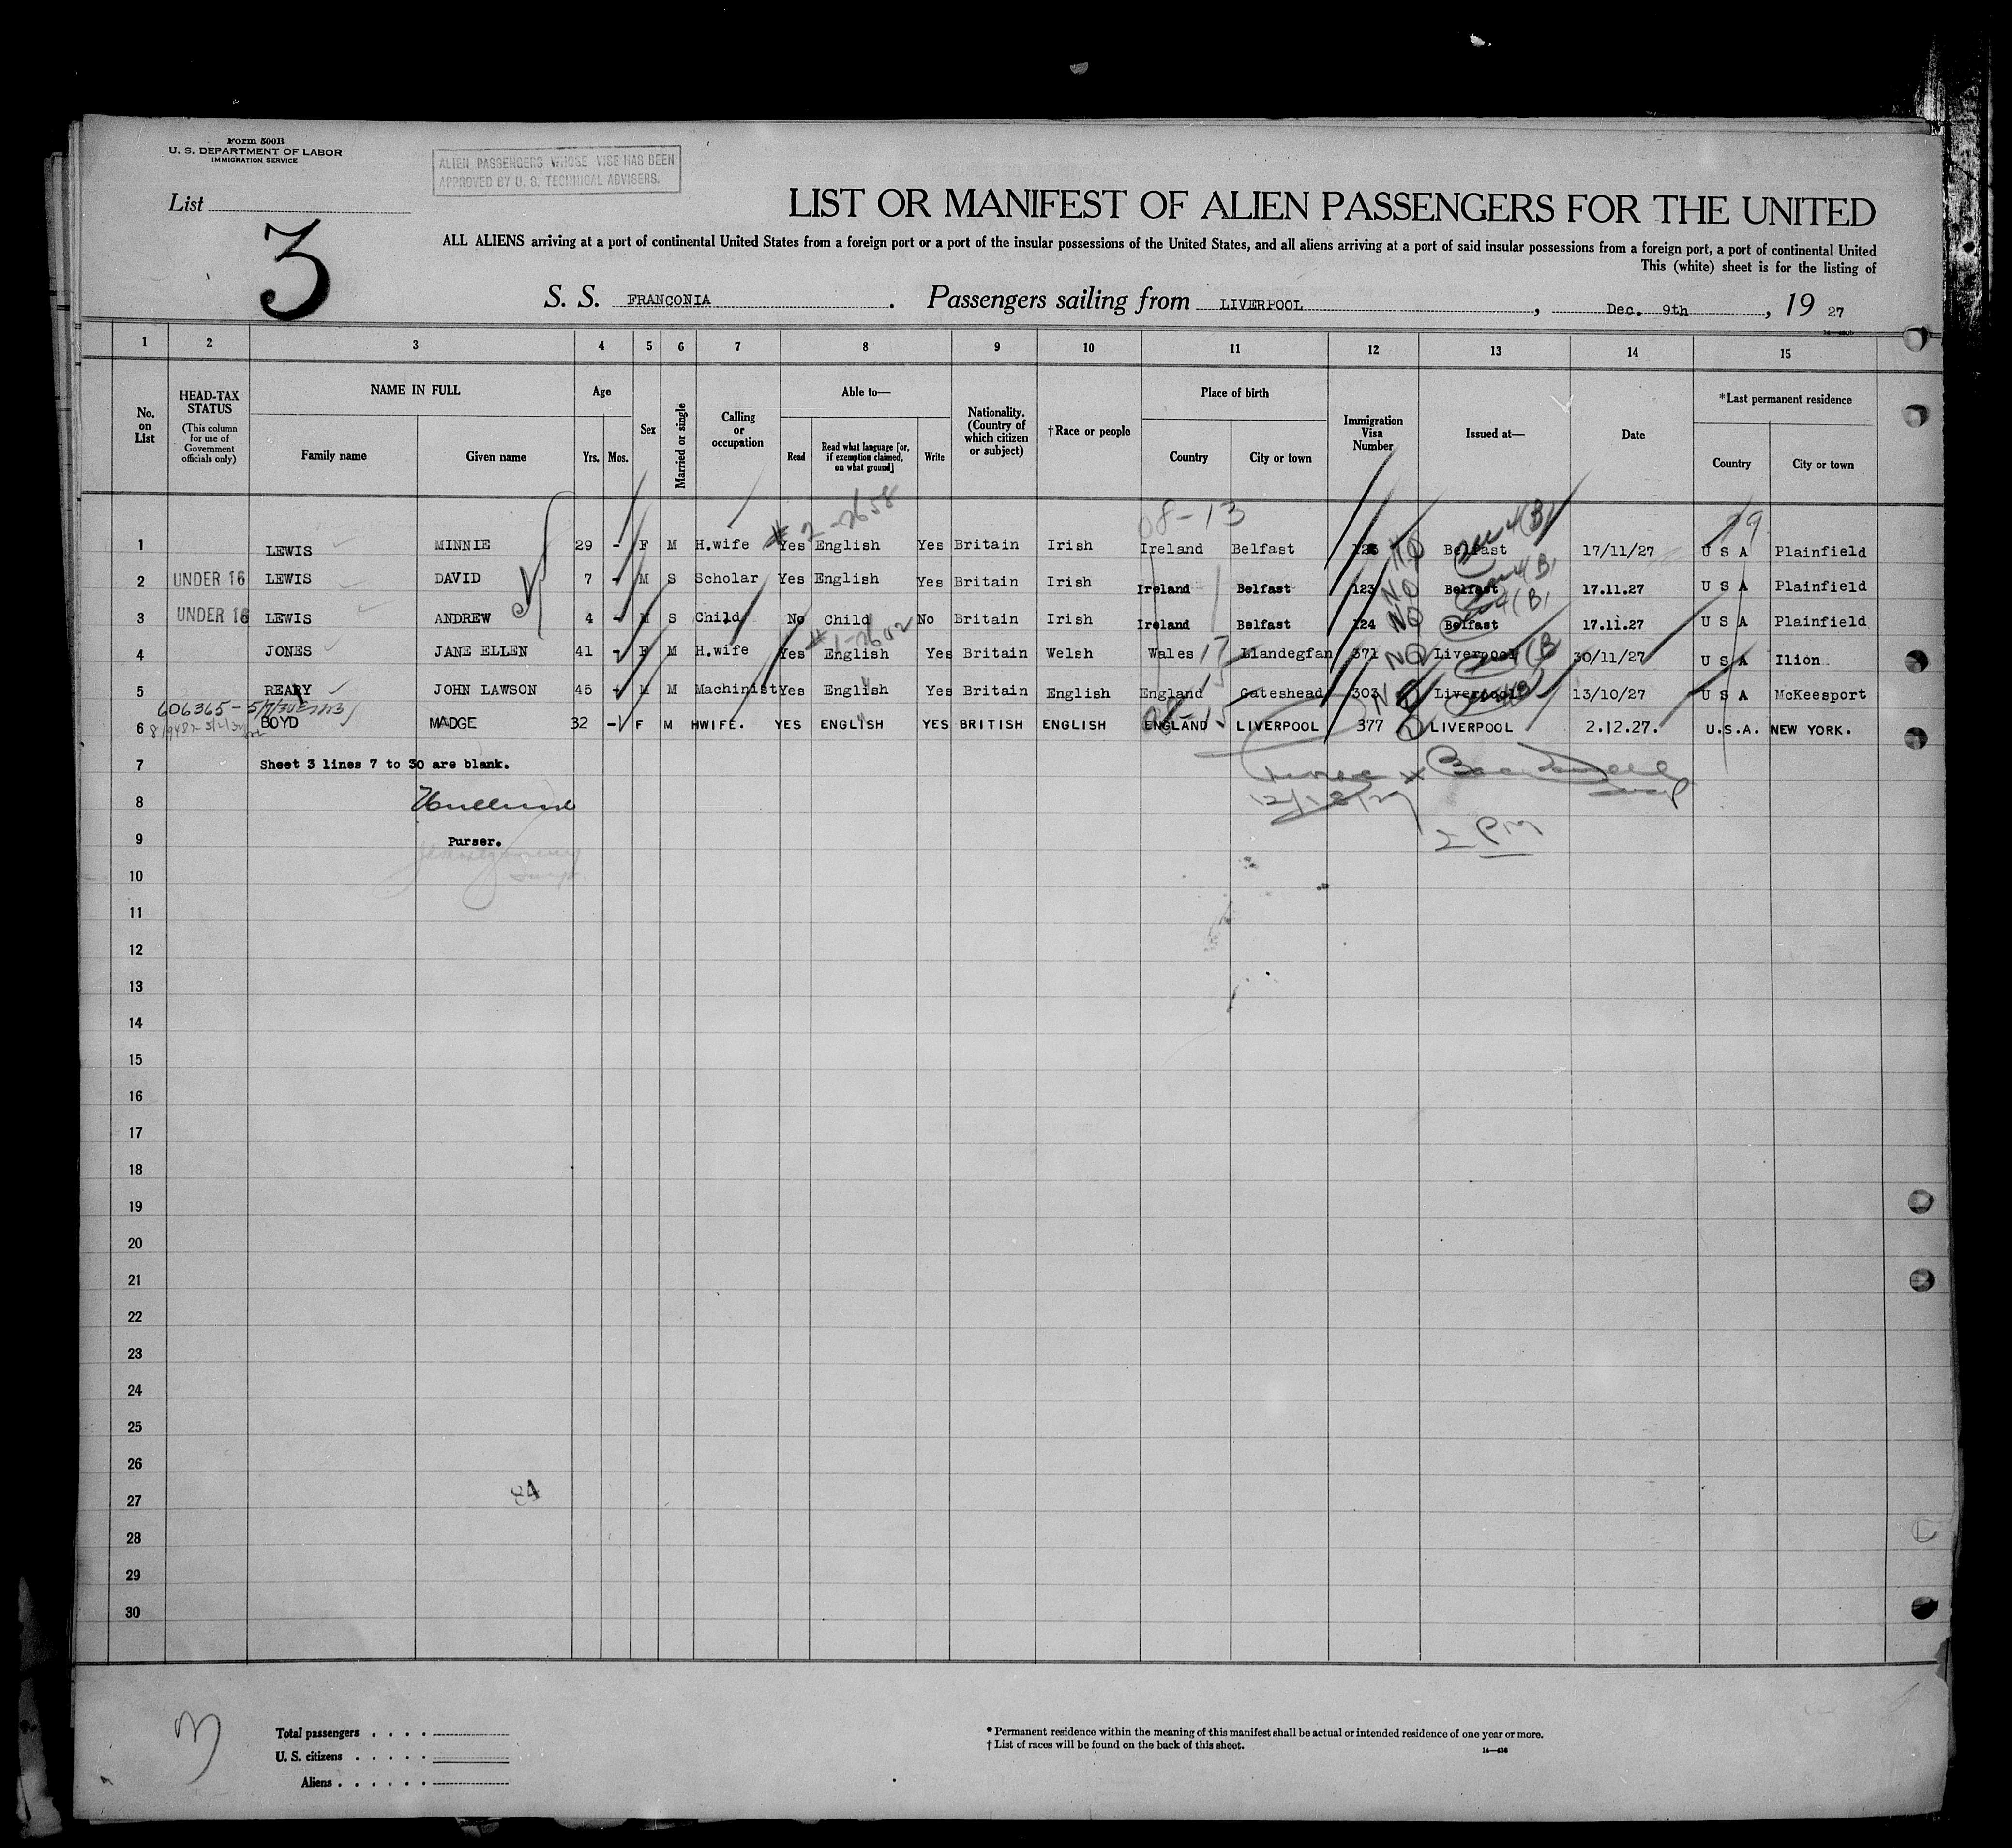 Form 500B
U. S. DEPARTMENT OF LABOR
IMMIGRATION SERVICE
ALIEN PASSENGERS WHOSE VISE HAS BEEN
APPROVED BY U. S. TECHNICAL ADVISERS.
List
3
LIST OR MANIFEST OF ALIEN PASSENGERS FOR THE UNITED
ALL ALIENS arriving at a port of continental United States from a foreign port or a port of the insular possessions of the United States, and all aliens arriving at a port of said insular possessions from a foreign port, a port of continental United
This (white) sheet is for the listing of
S. S. FRANCONIA . Passengers sailing from LIVERPOOL , Dec. 9th , 19 27
1 2 3 4 5 6 7 8 9 10 11 12 13 14 15
No. on List
HEAD-TAX STATUS (This column for use of Government officials only)
NAME IN FULL
Family name Given name
Age
Yrs. Mos.
Sex
Married or single
Calling or occupation
Able to—
Read Read what language [or, if exemption claimed, on what ground] Write
Nationality. (Country of which citizen or subject)
†Race or people
Place of birth
Country City or town
Immigration Visa Number
Issued at—
Date
*Last permanent residence
Country City or town
08-13
1 LEWIS MINNIE 29 - F M H.wife Yes English Yes Britain Irish Ireland Belfast Belfast 17/11/27 U S A Plainfield
2 UNDER 16 LEWIS DAVID 7 - M S Scholar Yes English Yes Britain Irish Ireland Belfast 123 Belfast 17.11.27 U S A Plainfield
3 UNDER 16 LEWIS ANDREW 4 - M S Child No Child No Britain Irish Ireland Belfast 124 Belfast 17.11.27 U S A Plainfield
4 JONES JANE ELLEN 41 - F M H.wife Yes English Yes Britain Welsh Wales Llandegfan 371 Liverpool 30/11/27 U S A Ilion
5 REARY JOHN LAWSON 45 - M M Machinist Yes English Yes Britain English England Gateshead 303 Liverpool 13/10/27 U S A McKeesport
606365 -
6 BOYD MADGE 32 - F M HWIFE. YES ENGLISH YES BRITISH ENGLISH ENGLAND LIVERPOOL 377 LIVERPOOL 2.12.27. U.S.A. NEW YORK.
7 Sheet 3 lines 7 to 30 are blank.
8
2 PM
9 Purser.
10
11
12
13
14
15
16
17
18
19
20
21
22
23
24
25
26
27
28
29
30
3
Total passengers . . . .
U. S. citizens . . . . .
Aliens . . . . . .
* Permanent residence within the meaning of this manifest shall be actual or intended residence of one year or more.
† List of races will be found on the back of this sheet.